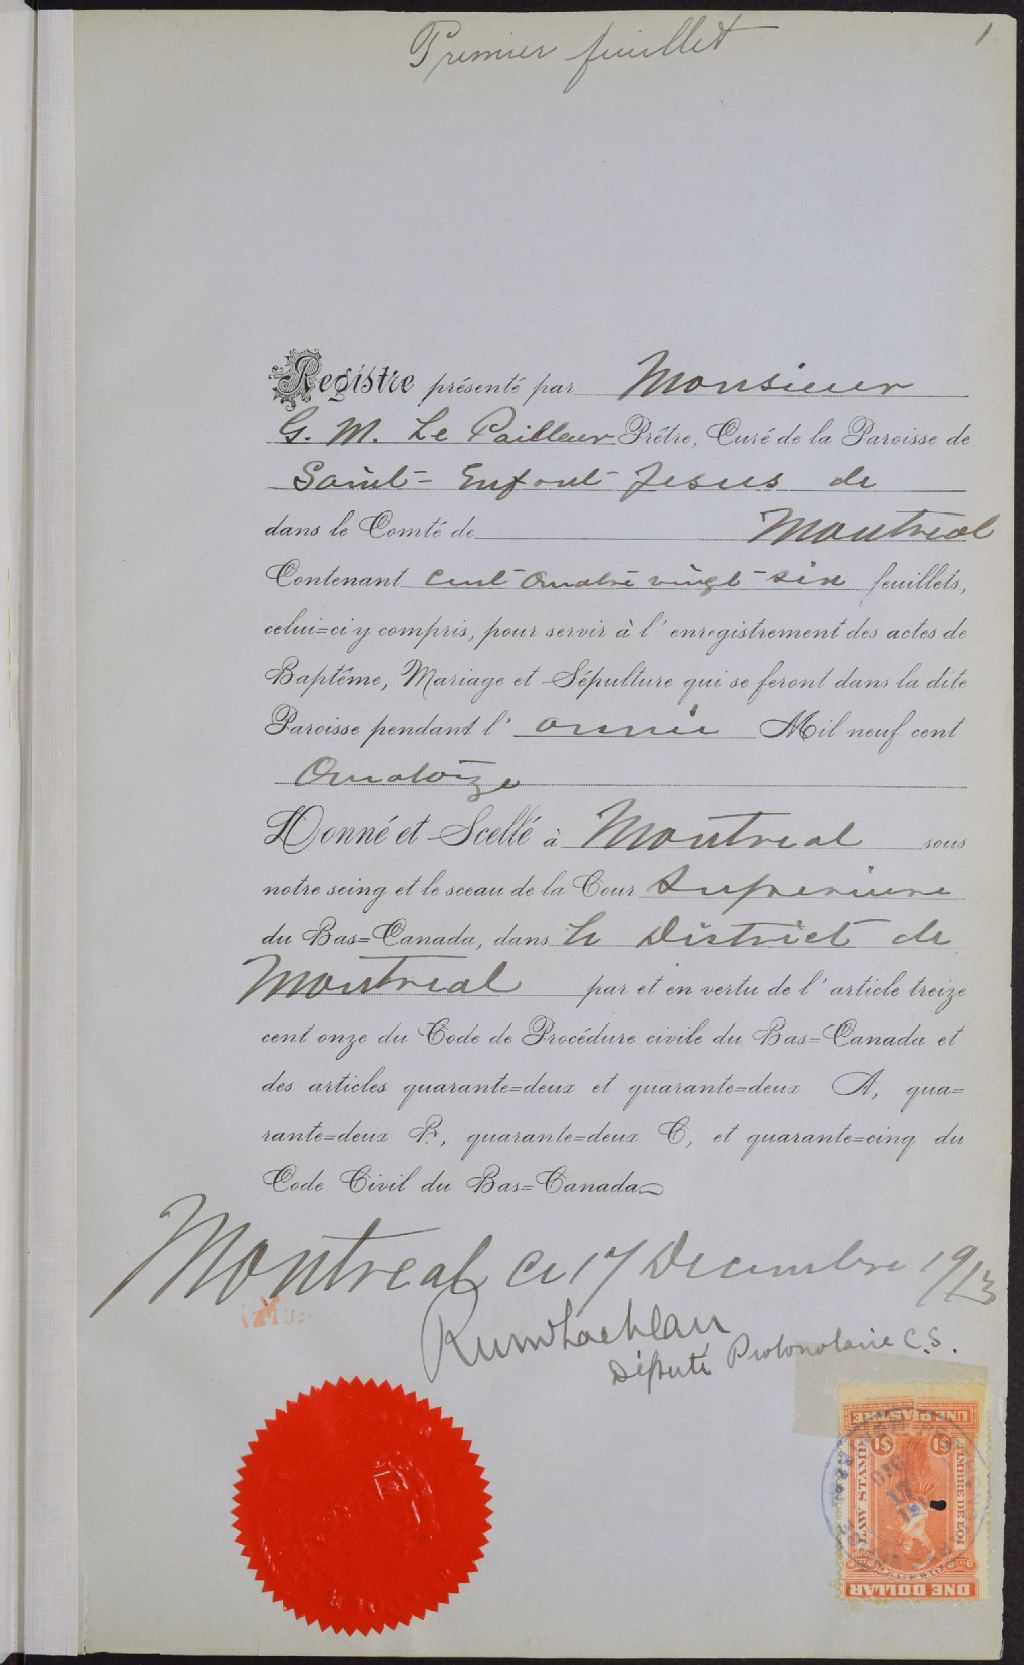 Premier feuillet
1
Registre présenté par Monsieur
G. M. Le Pailleur Prêtre, Curé de la Paroisse de
Saint-Enfant Jesus de
dans le Comté de Montreal
Contenant cent quatre vingt six feuillets,
celui=ci y compris, pour servir à l'enregistrement des actes de
Baptême, Mariage et Sépulture qui se feront dans la dite
Paroisse pendant l'année Mil neuf cent
Quatorze
Donné et Scellé à Montreal sous
notre seing et le sceau de la Cour Superieure
du Bas=Canada, dans le District de
Montreal par et en vertu de l'article treize
cent onze du Code de Procédure civile du Bas=Canada et
des articles quarante=deux et quarante=deux A, qua=
rante=deux B, quarante=deux C, et quarante=cinq du
Code Civil du Bas=Canada
Montreal ce 17 Decembre 1913
Député Protonotaire C.S.
UNE PIASTRE
$1 $1
LAW STAMP
TIMBRE DE LOI
DEC
17
ONE DOLLAR